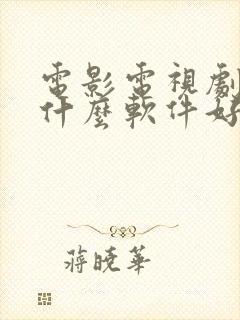 電影電視劇
什麼軟件好
蔣曉華